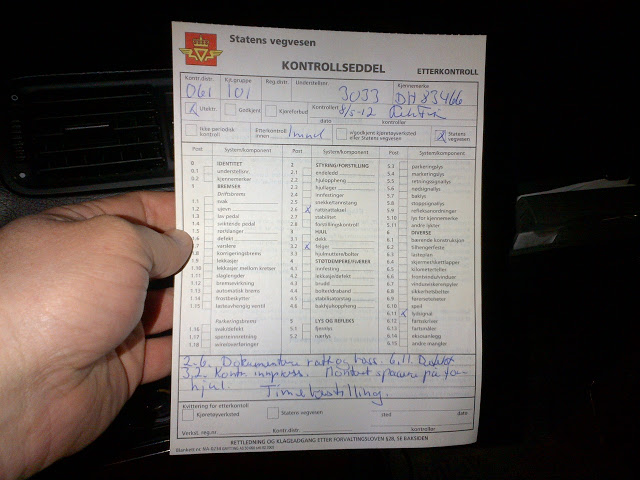 Statens vegvesen
KONTROLLSEDDEL
ETTERKONTROLL
Kontr.distr. Kjt.gruppe Reg.distr. Understellsnr. Kjennemerke
061 101 3033 DH 83466
X Utektr. Godkjent Kjøreforbud Kontrollert 8/5-12
dato kontrollør
Ikke periodisk kontroll
Etterkontroll innen 1 mnd
v/godkjent kjøretøyverksted eller Statens vegvesen
X Statens vegvesen
Post System/komponent Post System/komponent Post System/komponent
0 IDENTITET
0.1 understellsnr.
0.2 kjennemerker
1 BREMSER
Driftsbrems
1.1 svak
1.2 ujevn
1.3 lav pedal
1.4 synkende pedal
1.5 rør/slanger
1.6 defekt
varslere
korrigeringsbrems
1.9 lekkasjer
1.10 lekkasjer mellom kretser
1.11 slaglengder
1.12 bremsevirkning
1.13 automatisk brems
1.14 frostbeskytter
1.15 lasteavhengig ventil
Parkeringsbrems
1.16 svak/defekt
1.17 sperreinnretning
1.18 wire/overføringer
2 STYRING/FORSTILLING
2.1 endeledd
2.2 hjuloppheng
2.3 hjullager
2.4 innfestninger
2.5 snekke/tannstang
2.6 X ratt/rattaksel
2.7 stabilitet
2.8 forstillingskontroll
3 HJUL
3.1 dekk
3.2 X felger
3.3 hjulmuttere/bolter
4 STØTDEMPERE/FJÆRER
4.1 innfesting
4.2 lekkasje/defekt
4.3 brudd
4.4 bolter/draband
4.5 stabilisatorstag
4.6 bakhjulsoppheng
5 LYS OG REFLEKS
5.1 fjernlys
5.2 nærlys
5.3 parkeringslys
5.4 markeringslys
5.5 retningssignallys
5.6 nødsignallys
5.7 baklys
5.8 stoppsignallys
5.9 refleksanordninger
5.10 lys for kjennemerke
5.11 andre lykter
6 DIVERSE
6.1 bærende konstruksjon
6.2 tilhengerfeste
6.3 lasteplan
6.4 skjermer/skvettlapper
6.5 kilometerteller
6.6 frontrude/vinduer
6.7 vindusvisker/spyler
6.8 sikkerhetsbelter
6.9 førerseter/seter
6.10 speil
6.11 X lydsignal
6.12 fartsskriver
6.13 fartsmåler
6.14 eksosanlegg
6.15 andre mangler
2.6. Dokumentere ratt og bass. 6.11. Defekt
3.2. Kontr. innpress. Montert spacere på for-
hjul. Timebestilling.
Kvittering for etterkontroll
Kjøretøyverksted Statens vegvesen sted dato
Verkst. reg.nr. Kontr.distr. kontrollør
RETTLEDNING OG KLAGEADGANG ETTER FORVALTINGSLOVEN §28, SE BAKSIDEN